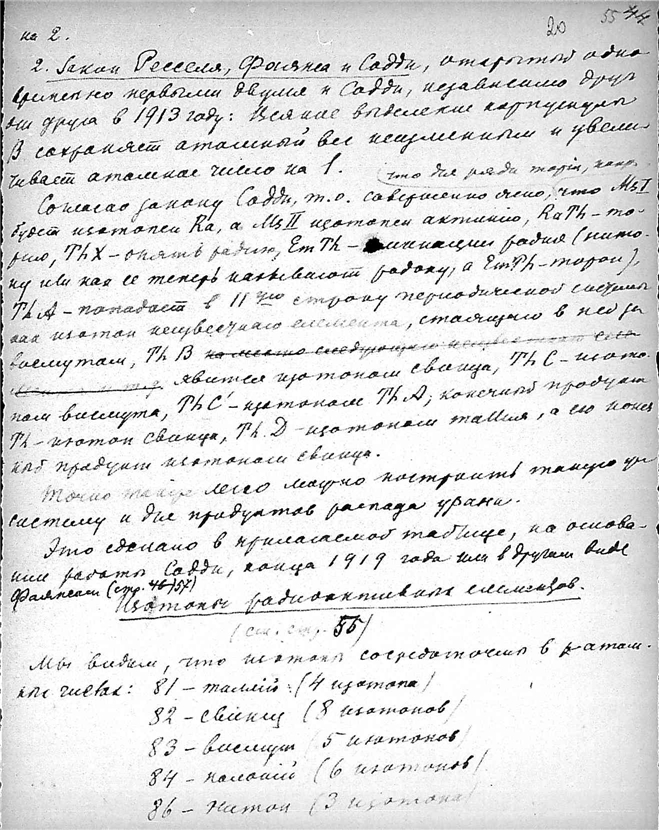 на 2.
20 55 44
2. Закон Ресселя, Фаянса и Содди, открытый одно
временно первыми двумя и Содди, независимо друг
от друга в 1913 году: Всякое выделение корпускулы
B сохраняет атомный вес неизменным и увели
чивает атомное число на 1.
что для ряда тория,
Согласно закону Содди, т.о. совершенно ясно, что MsI
будет изотопен Ra, а MsII изотопен актинию, RaTh - то-
рию, ThX - опять радию, EmTh - эманации радия (нито-
ну или как ее теперь называют радону, а EmTh - торон),
ThA - попадает в 11ую строку периодической системы
как изотоп неизвестного элемента, стоящего в ней за
висмутом, ThB на место следующего неизвестного
явится изотопом свинца, ThC - изото-
пом висмута, ThC' - изотопом ThA; конечный продукт
Th - изотоп свинца, ThD - изотопом таллия, а его конеч
ный продукт изотопом свинца.
Точно также легко можно построить такую же
систему и для продуктов распада урана.
Это сделано в прилагаемой таблице, на основа-
нии работы Содди, конца 1919 года или в другом виде
Фаянсом (стр. 46) 57)
Изотопы радиоактивных элементов.
(см. стр. 55)
Мы видим, что изотопы сосредоточены в атом-
ных числах: 81 - таллий (4 изотопа)
82 - свинец (8 изотопов)
83 - висмут (5 изотопов)
84 - полоний (6 изотопов)
86 - нитон (3 изотопа)